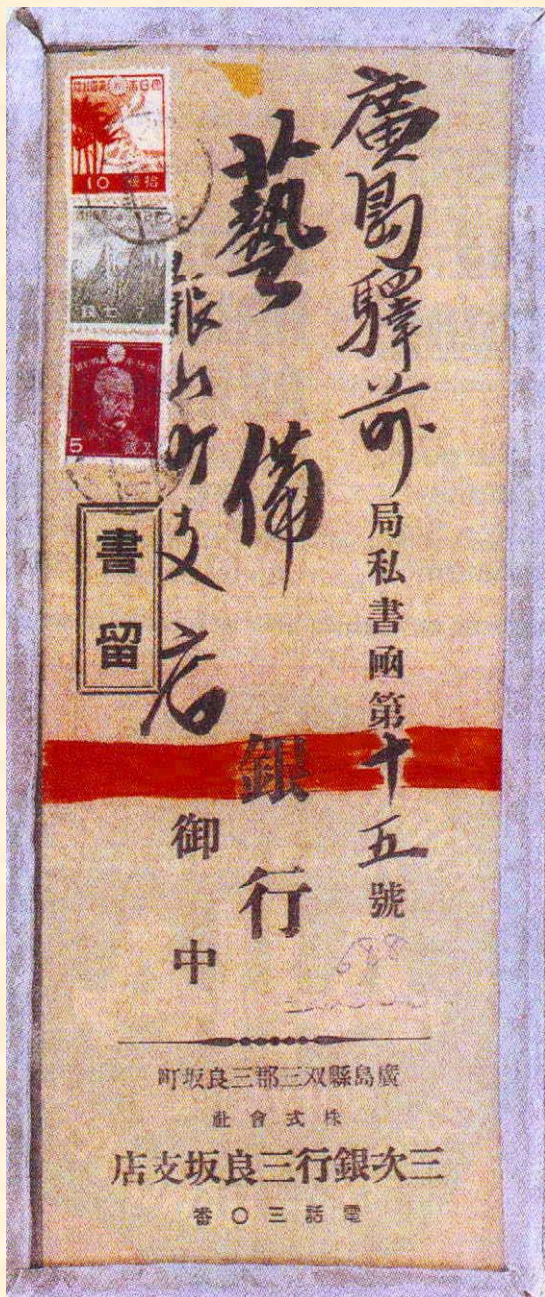 廣島驛前局私書凾第十五號
藝備銀行
銀山町支店御中
書留
10 拾銭
七銭
5 五銭
688
廣島縣双三郡三良坂町
株式會社
三次銀行三良坂支店
電話三〇番